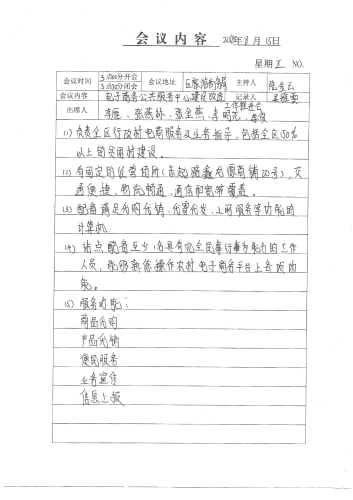 会议内容 2018年8月15日
星期三 NO.
会议时间 3点00分开会 会议地址 主持人
3点30分闭会
会议内容 电子商务公共服务中心建设改造 记录人
工作推进会
出席人 李雁、张燕玲、张金燕、李明花、
(1) 负责全区行政村电商服务及业务指导,包括全区50%
以上的贫困村建设。
(2) 有固定的经营场所( 商铺20号),交
通便捷、物流畅通、通信和宽带覆盖。
(3) 配备满足代购代销、代寄代发、上网服务等功能的
计算机。
(4) 站点配备至少1名具有完全民事行为能力的工作
人员,能够熟练操作农村电子商务平台上各项功
能。
(5) 服务功能:
商品代购
产品代销
便民服务
业务宣传
信息上报